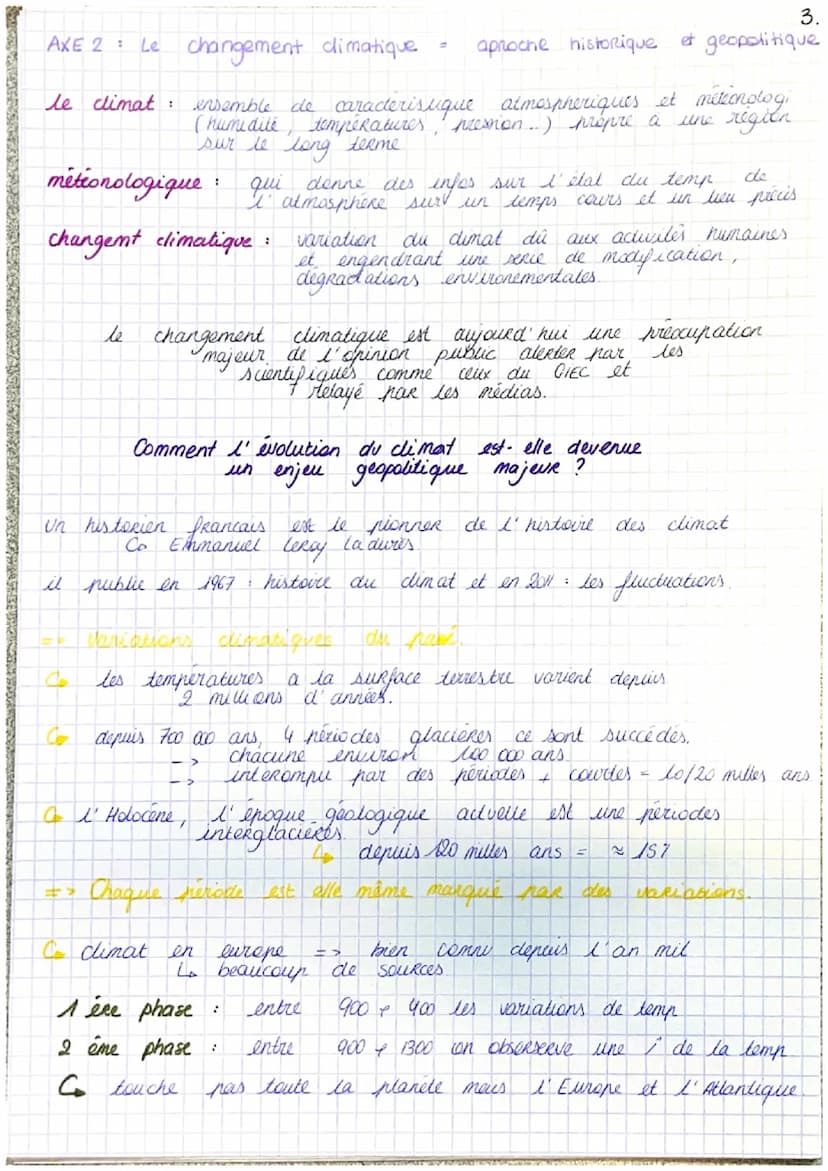 3.
AXE 2 : Le changement climatique = aproche historique et geopolitique
le climat : ensemble de caractérisuque atmospheriques et météonologi
(humidité, températures, pression...) propre à une région
sur le long terme
météonologique : qui donne des infos sur l'état du temp de
l'atmosphère sur un temps cours et un lieu précis
changemt climatique : variation du climat dû aux activités humaines
et engendrant une serie de modification,
dégradations environementales.
le changement climatique est aujourd'hui une préocupation
majeur de l'opinion public alerter par les
scientifiques comme ceux du GIEC et
relayé par les médias.
Comment l'évolution du climat est-elle devenue
un enjeu geopolitique majeur ?
un historien francais est le pionner de l'histoire des climat
Emmanuel leroy ladures
il publie en 1967 : histoire du climat et en 2011 : les fluctuations.
=> variations climatiques du passé.
les températures a la surface terrestre varient depuis
2 millions d'années.
depuis 700 000 ans, 4 périodes glacières ce sont succédés.
-> chacune environ 100 000 ans
-> interompu par des périodes + courtes = 10/20 milles ans
l'Holocène, l'époque géologique actuelle est une périodes
interglacières.
↳ depuis 120 milles ans = ≈ 15%
=> Chaque période est elle même marqué par des variations.
climat en europe => bien connu depuis l'an mil
↳ beaucoup de sources
1 ère phase : entre 900 et 400 les variations de temp
2 ème phase : entre 900 et 1300 on observerve une ↗ de la temp
touche pas toute la planète mais l'Europe et l'Atlantique.